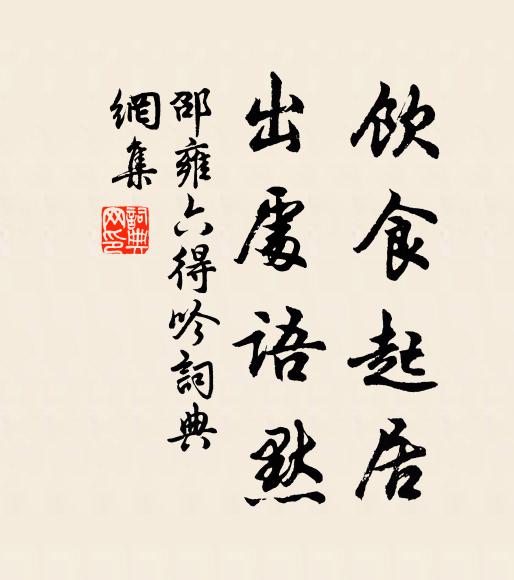 飲食起居
出處語默
邵雍六得吟詞典
網集
詞典網印